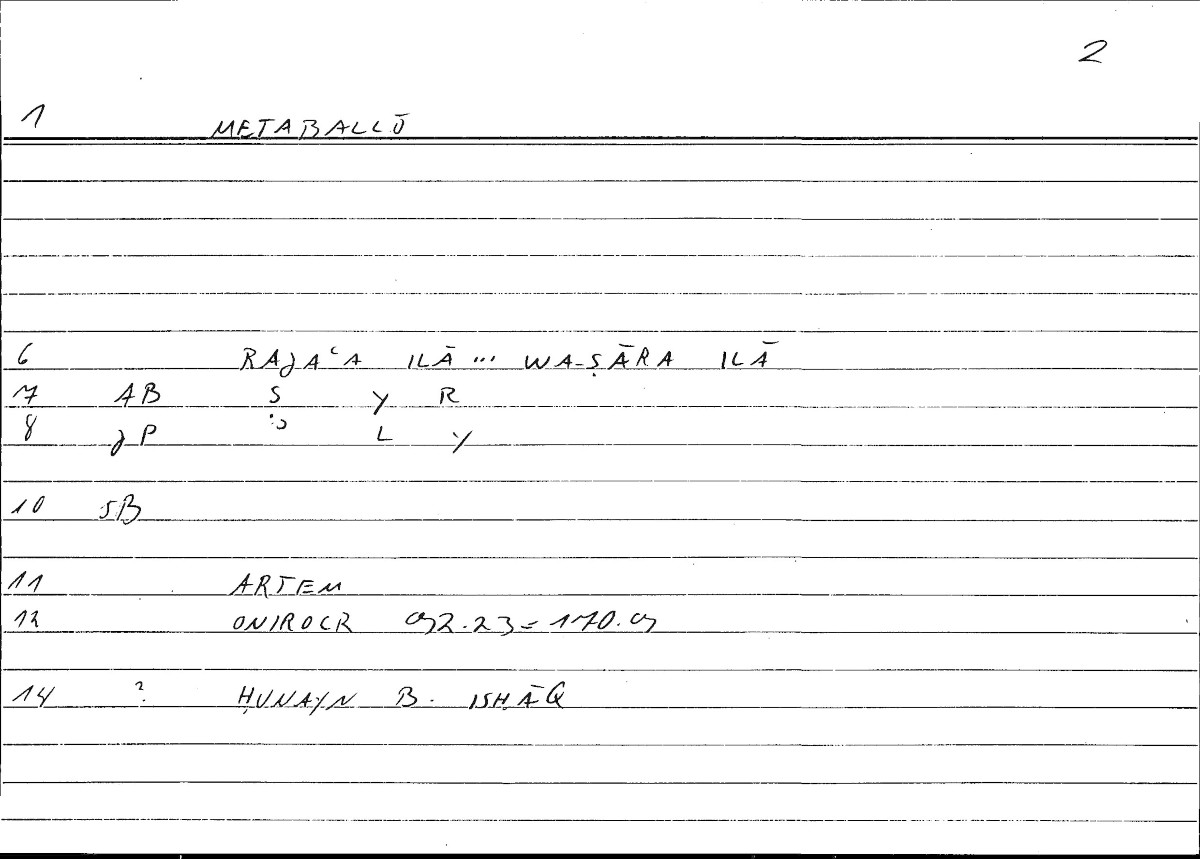 2
1 METABALLŌ
6 RAJAʿA ILĀ ... WA-ṢĀRA ILĀ
7 AB S Y R
8 JP L Y
10 SB
11 ARTEM
12 ONIROCR 92.23 = 170.9
14 ? ḤUNAYN B. ISḤĀQ